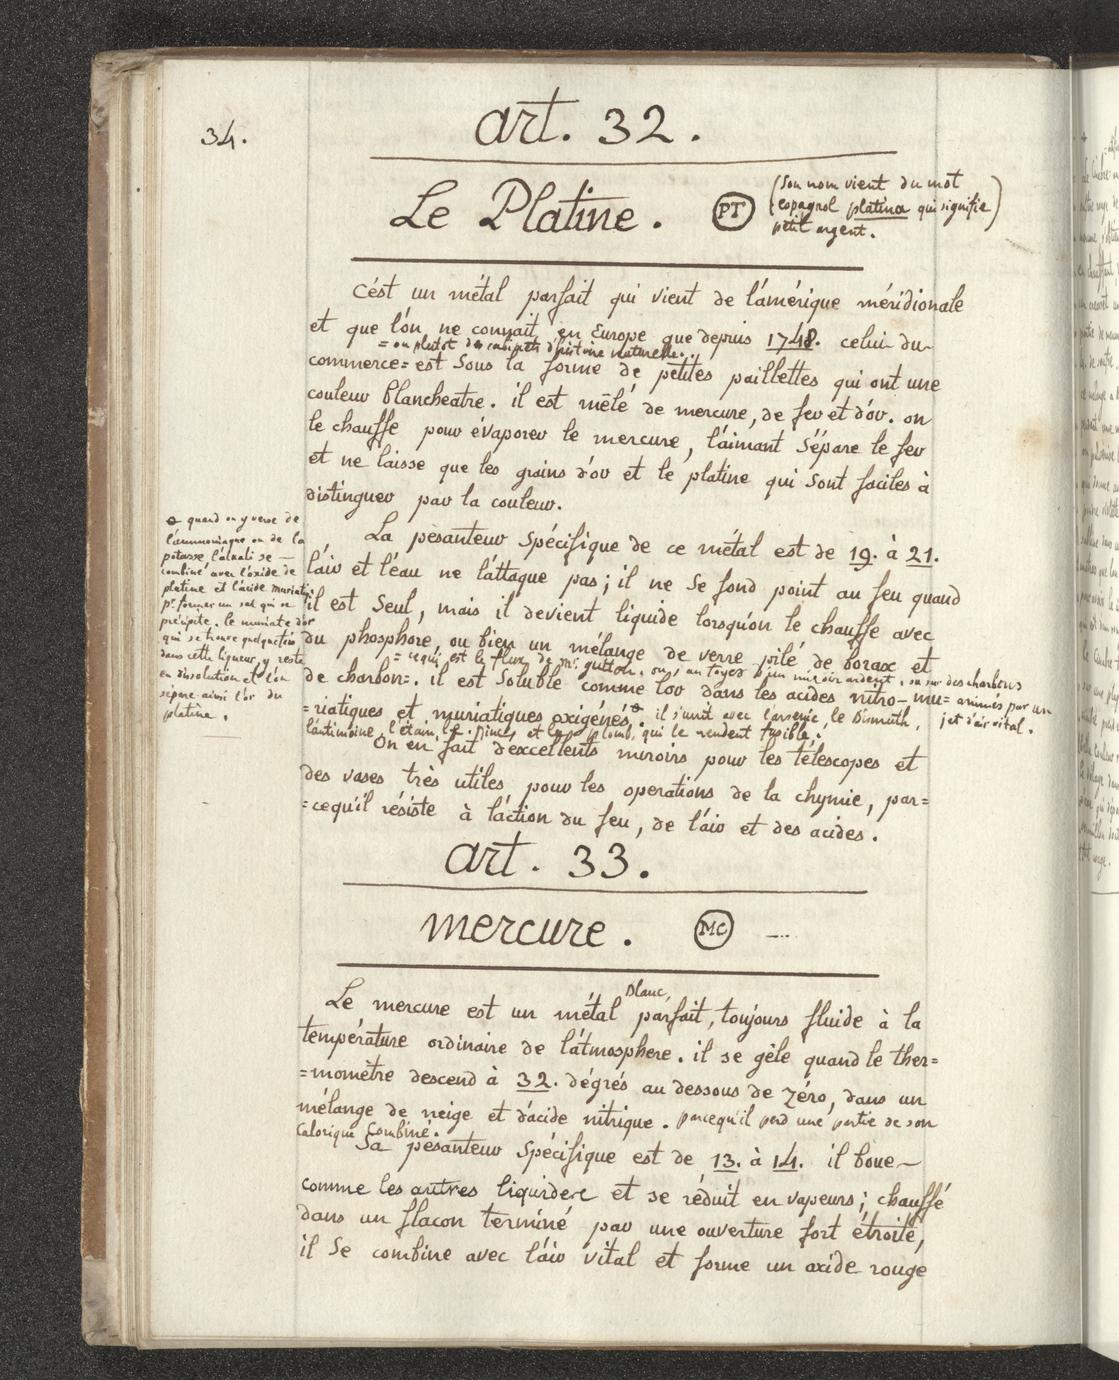 34.
art. 32.
Le Platine. PT
(Son nom vient du mot
espagnol platina qui signifie)
petit argent.
C'ést un métal parfait qui vient de l'amérique méridionale
et que l'ón ne connait en Europe que depuis 1748. celui du
= ou plutot des cabinets d'histoire naturelle.
commerce= est Sous la forme de petites paillettes qui ont une
couleur blancheatre. il est mêlé de mercure, de fer et d'or. on
le chauffe pour évaporer le mercure, l'aimant Sépare le fer
et ne laisse que les grains d'or et le platine qui Sont faciles à
distinguer par la couleur.
La pesanteur Spécifique de ce métal est de 19. à 21.
l'air et l'éau ne l'áttaque pas; il ne Se fond point au feu quand
il est Seul, mais il devient liquide lorsqu'on le chauffe avec
du phosphore, ou bien un mélange de verre pilé de borax et
= cequi est le flux de Mr. guiton. ou, au foyer d'un miroir ardent, ou sur des charbons
de charbon=. il est Soluble comme l'or dans les acides nitro-mu= animés par un
=riatiques et muriatiques oxigénés. il s'unit avec l'arsenic, le bismuth, jet d'air vital.
l'antimoine, l'étain, le zinc, et le plomb, qui le rendent fusible.
On en fait d'excellents miroirs pour les télescopes et
des vases très utiles, pour les operations de la chymie, par=
=cequ'il résiste à l'áction du feu, de l'air et des acides.
quand on y verse de
l'ammoniaque ou de la
potasse l'alcali se
combine avec l'oxide de
platine et l'acide muriatiq.
pr. former un sel qui se
précipite. le muriate d'or
qui se trouve quelquefois
dans cette liqueur, y reste
en dissolution et l'on
sépare ainsi l'or du
platine.
art. 33.
mercure. MC
Blanc,
Le mercure est un métal parfait, toujours fluide à la
température ordinaire de l'átmosphere. il se gèle quand le ther=
=momètre descend à 32. dégrés au dessous de zéro, dans un
mélange de neige et d'ácide nitrique. parcequ'il perd une partie de son
Calorique Combiné.
Sa pesanteur Spécifique est de 13. à 14. il boue
comme les autres liquides et se réduit en vapeurs; chauffé
dans un flacon terminé par une ouverture fort étroite,
il Se combine avec l'áir vital et forme un oxide rouge